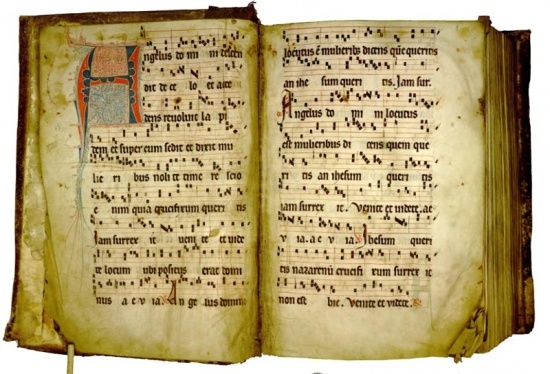 Angelus domini descen
dit de ce lo et acce
dens revolvit la pi
dem et super eum sedit et dixit mu
lie ri bus nolite time re scio
e nim quia crucifixum queri tis
iam surrex it veni te et vide
te locum ubi positus erat domi
nus a e v ia Ange lus domini
locutus e mulieribs dicens que queritis
an ihe sum queri tis. Iam sur.
Angelus do mi ni locutus
est mulieribus di cens quem que
ri tis an ihesum queri tis
iam surrex it. Venite et videte. ae
v ia. a e v ia Ihesum queri
tis nazarenu crucifi xum surrex it
non est hic. Venite et videte.